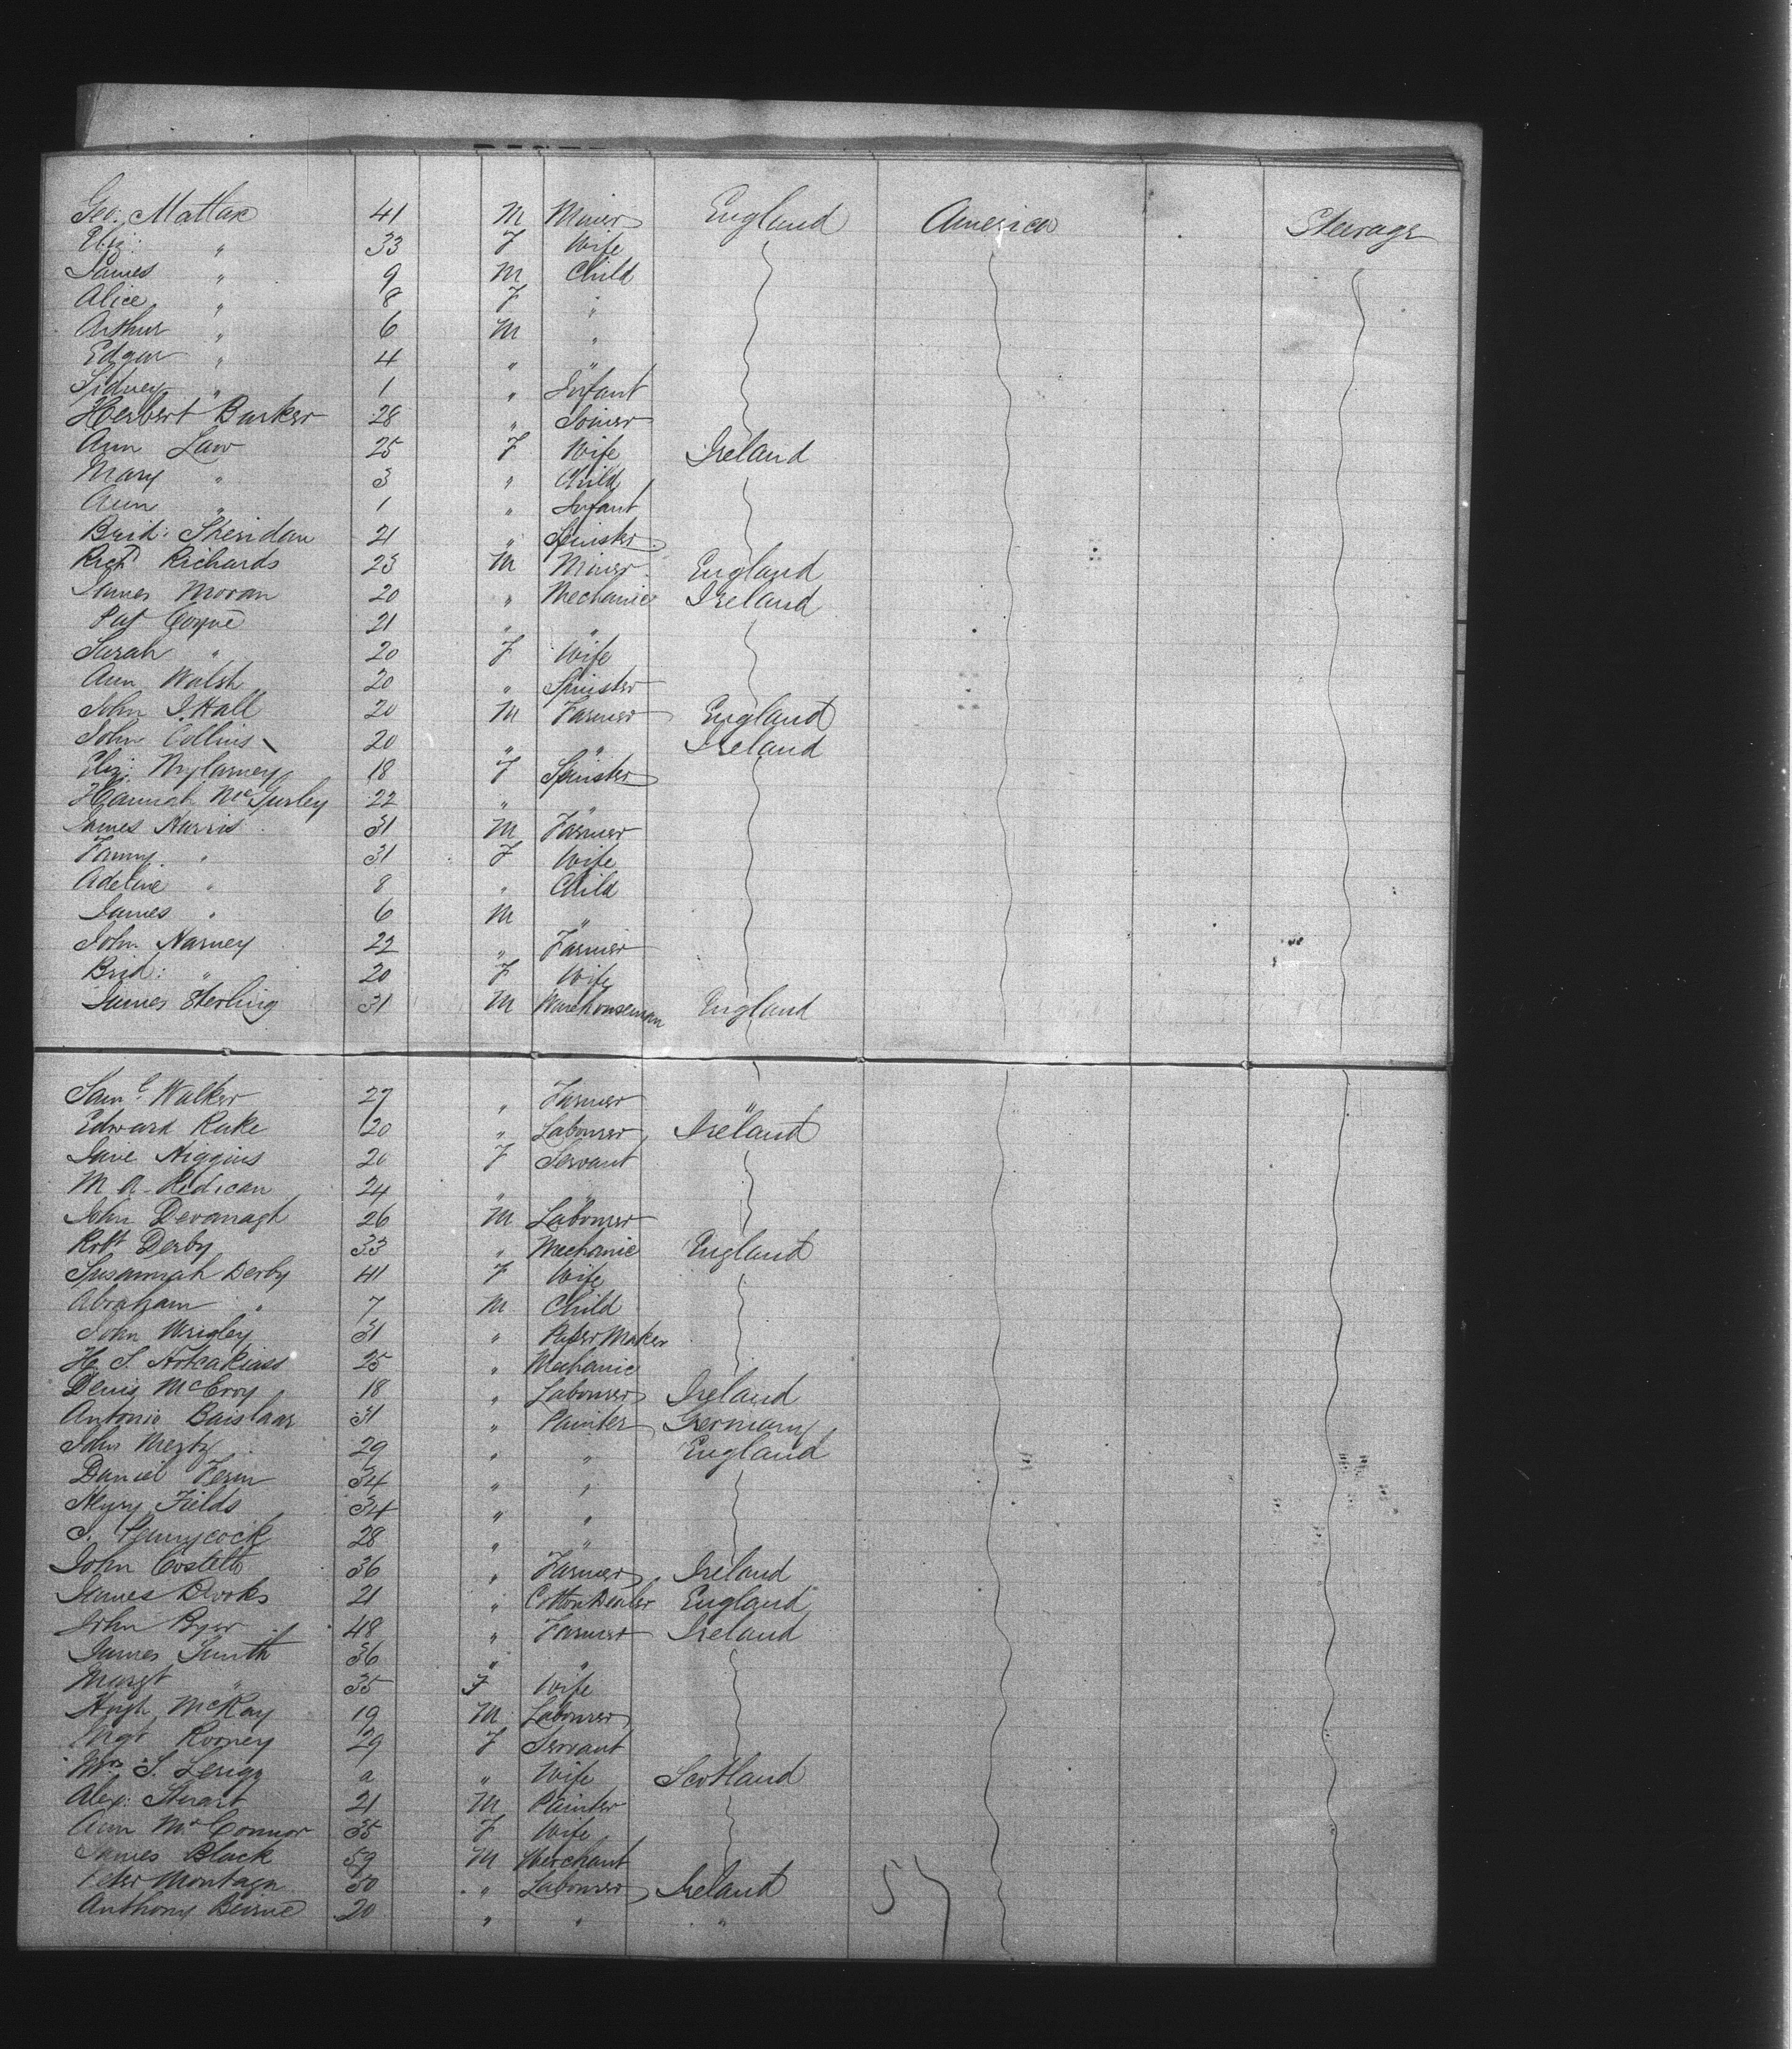 Geo: Mattax 41 M Miner England America Steerage
Eliz: " 33 F Wife
James " 9 M Child
Alice " 8 F "
Arthur " 6 M "
Edgar " 4 " "
Sidney " 1 " Infant
Herbert Barker 28 " Joiner
Ann Law 25 F Wife Ireland
Mary " 3 " Child
Ann " 1 " Infant
Brid: Sheridan 21 " Spinster
Richd Richards 23 M Miner England
James Moran 20 " Mechanic Ireland
Pat Coyne 21 " "
Sarah " 20 F Wife
Ann Walsh 20 " Spinster
John J. Hall 20 M Farmer England
John Collins 20 " " Ireland
Eliz: 18 F Spinster
Hannah McGurley 22 " "
James Harris 31 M Farmer
Fanny " 31 F Wife
Adeline " 8 " Child
James " 6 M "
John Narney 22 " Farmer
Brid: " 20 F Wife
James Sterling 31 M Warehouseman England
Saml Walker 27 " Farmer "
Edward Rake 20 " Labourer Ireland
Jane Higgins 20 F Servant
M A Hedican 24 " "
John Devanagh 26 M Labourer
Robt Derby 33 " Mechanic England
Susannah Derby 41 F Wife
Abraham " 7 M Child
John Wrigley 31 " Paper Maker
H. S. 25 " Mechanic
Denis McEroy 18 " Labourer Ireland
Antonio Baislaar 31 " Painter Germany
John Mertz 29 " " England
Daniel 34 " "
Henry Fields 34 " "
J. Pennycock 28 " "
John Costello 36 " Farmer Ireland
James Brooks 21 " Cotton Dealer England
John Byer 48 " Farmer Ireland
James Smith 36 " "
Margt " 35 F Wife
Hugh McKay 19 M Labourer
Mgt Rooney 29 F Servant
Mrs S. a " Wife Scotland
Alex: Stuart 21 M Painter
Ann McConnor 35 F Wife
James Black 59 M Merchant
Peter Montagu 50 " Labourer Ireland 57
Anthony Beirne 20 " " "